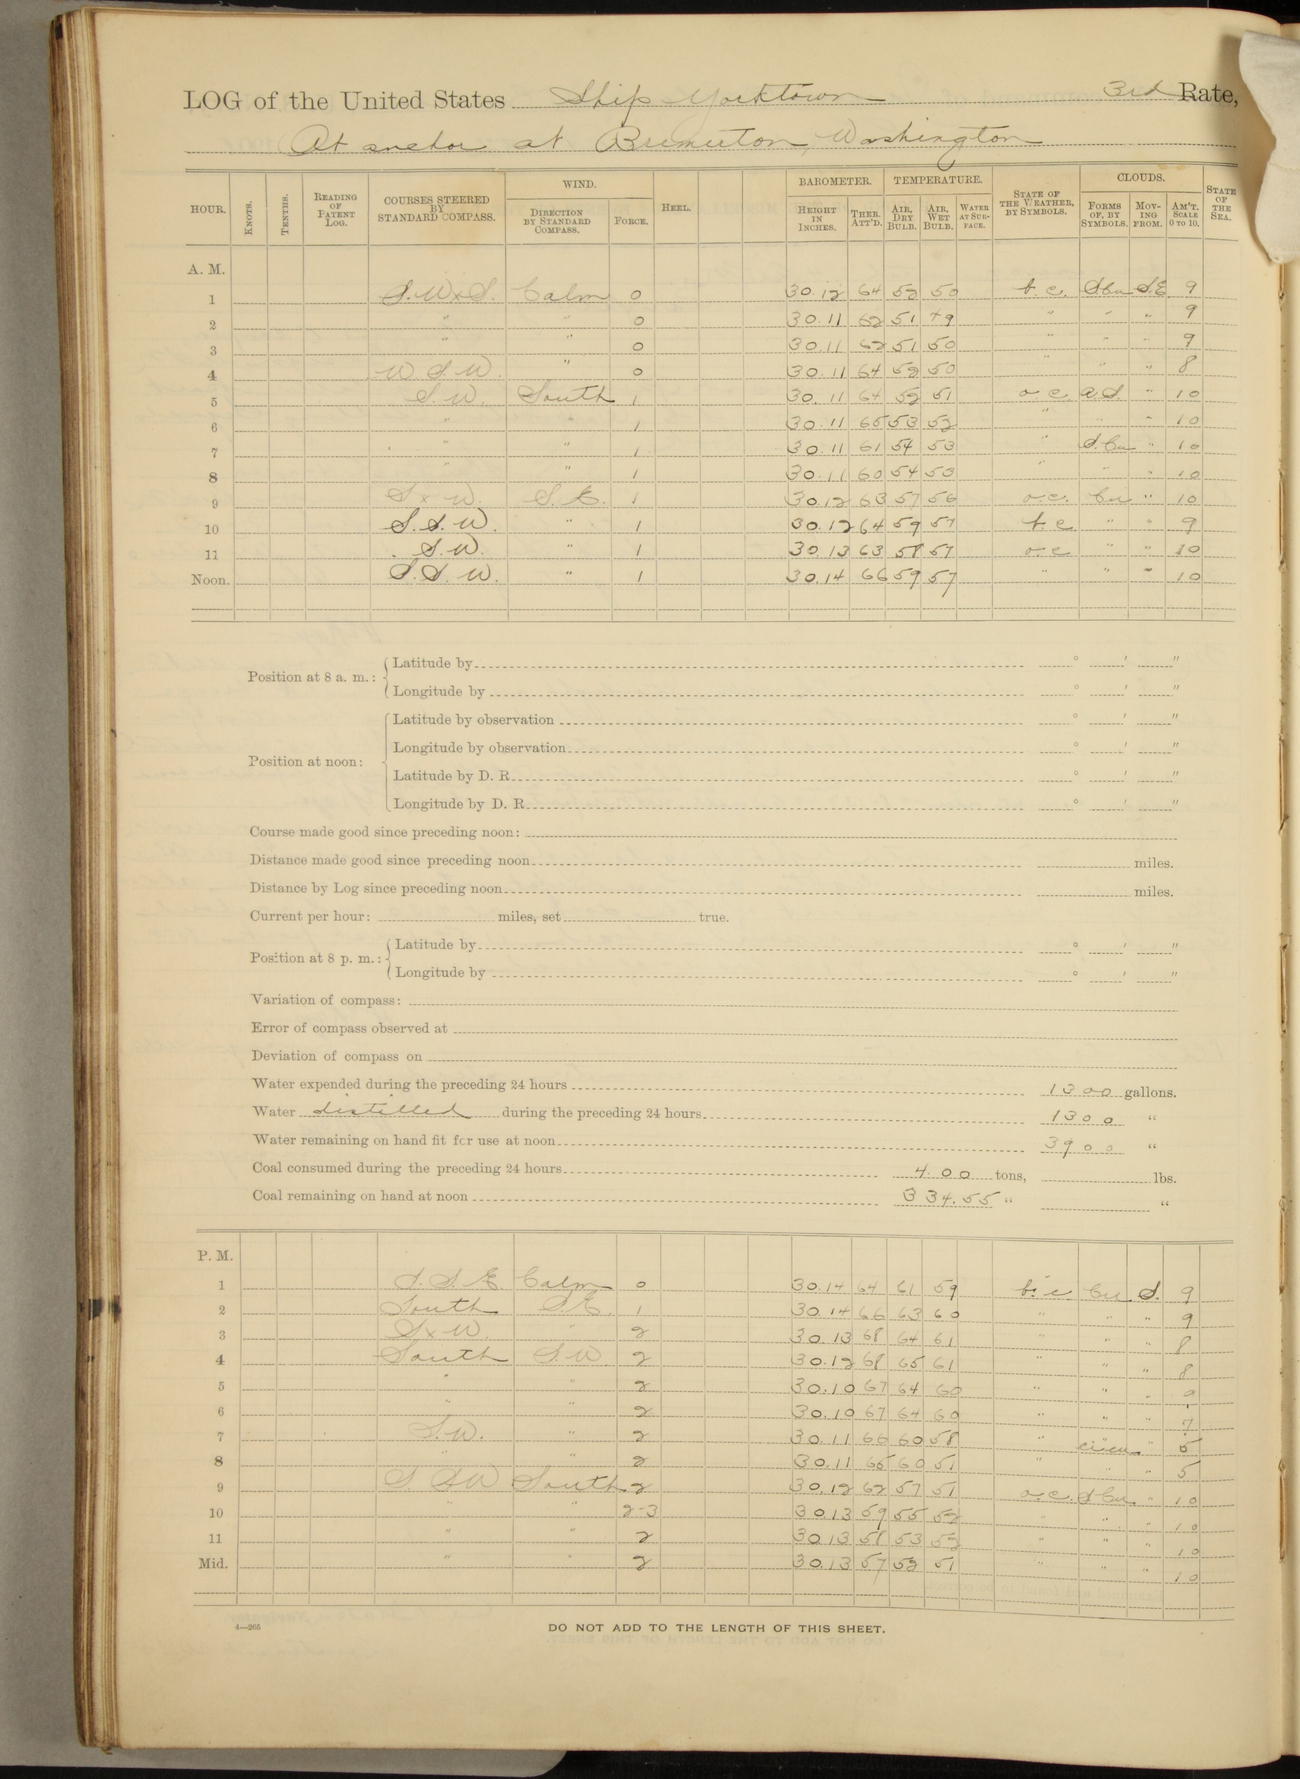 LOG of the United States Ship Yorktown 3rd Rate,
At anchor at Bremerton, Washington
HOUR. KNOTS. TENTHS. READING OF PATENT LOG. COURSES STEERED BY STANDARD COMPASS. WIND. DIRECTION BY STANDARD COMPASS. FORCE. HEEL. BAROMETER. HEIGHT IN INCHES. THER. ATT'D. TEMPERATURE. AIR, DRY BULB. AIR, WET BULB. WATER AT SURFACE. STATE OF THE WEATHER, BY SYMBOLS. CLOUDS. FORMS OF, BY SYMBOLS. MOVING FROM. AM'T. SCALE 0 TO 10. STATE OF THE SEA.
A. M.
1 S.WxS. Calm 0 30.12 64 52 50 b.c. S.Cu S.E 9
2 " " 0 30.11 62 51 49 " " " 9
3 " " 0 30.11 62 51 50 " " " 9
4 W S W. " 0 30.11 64 52 50 " " " 8
5 S.W. South 1 30.11 64 52 51 o.c. a.S. " 10
6 " " 1 30.11 65 53 52 " " " 10
7 " " 1 30.11 61 54 53 " S.Cu " 10
8 " " 1 30.11 60 54 53 " " " 10
9 SxW. S.E. 1 30.12 63 57 56 o.c. Cu " 10
10 S.S.W. " 1 30.12 64 59 57 b.c. " " 9
11 S.W. " 1 30.13 63 58 57 o.c " " 10
Noon. S.S.W. " 1 30.14 66 59 57 " " " 10
Position at 8 a. m.: Latitude by ° ' "
Longitude by ° ' "
Position at noon: Latitude by observation ° ' "
Longitude by observation ° ' "
Latitude by D. R. ° ' "
Longitude by D. R. ° ' "
Course made good since preceding noon:
Distance made good since preceding noon miles.
Distance by Log since preceding noon miles.
Current per hour: miles, set true.
Position at 8 p. m.: Latitude by ° ' "
Longitude by ° ' "
Variation of compass:
Error of compass observed at
Deviation of compass on
Water expended during the preceding 24 hours 1300 gallons.
Water distilled during the preceding 24 hours 1300 "
Water remaining on hand fit for use at noon 3900 "
Coal consumed during the preceding 24 hours 4.00 tons, lbs.
Coal remaining on hand at noon 334.55 " "
P. M.
1 S.S.E Calm 0 30.14 64 61 59 b.c Cu S. 9
2 South S.E. 1 30.14 66 63 60 " " " 9
3 SxW. " 2 30.13 68 64 61 " " " 8
4 South S.W 2 30.12 68 65 61 " " " 8
5 " " 2 30.10 67 64 60 " " "
6 " " 2 30.10 67 64 60 " " " 7
7 S.W. " 2 30.11 66 60 58 " " 5
8 " " 2 30.11 65 60 57 " " " 5
9 South 2 30.12 62 57 57 o.c. S.Cu. " 10
10 " " 2-3 30.13 59 55 52 " " " 10
11 " " 2 30.13 58 53 52 " " " 10
Mid. " " 2 30.13 57 52 51 " " " 10
4—265
DO NOT ADD TO THE LENGTH OF THIS SHEET.